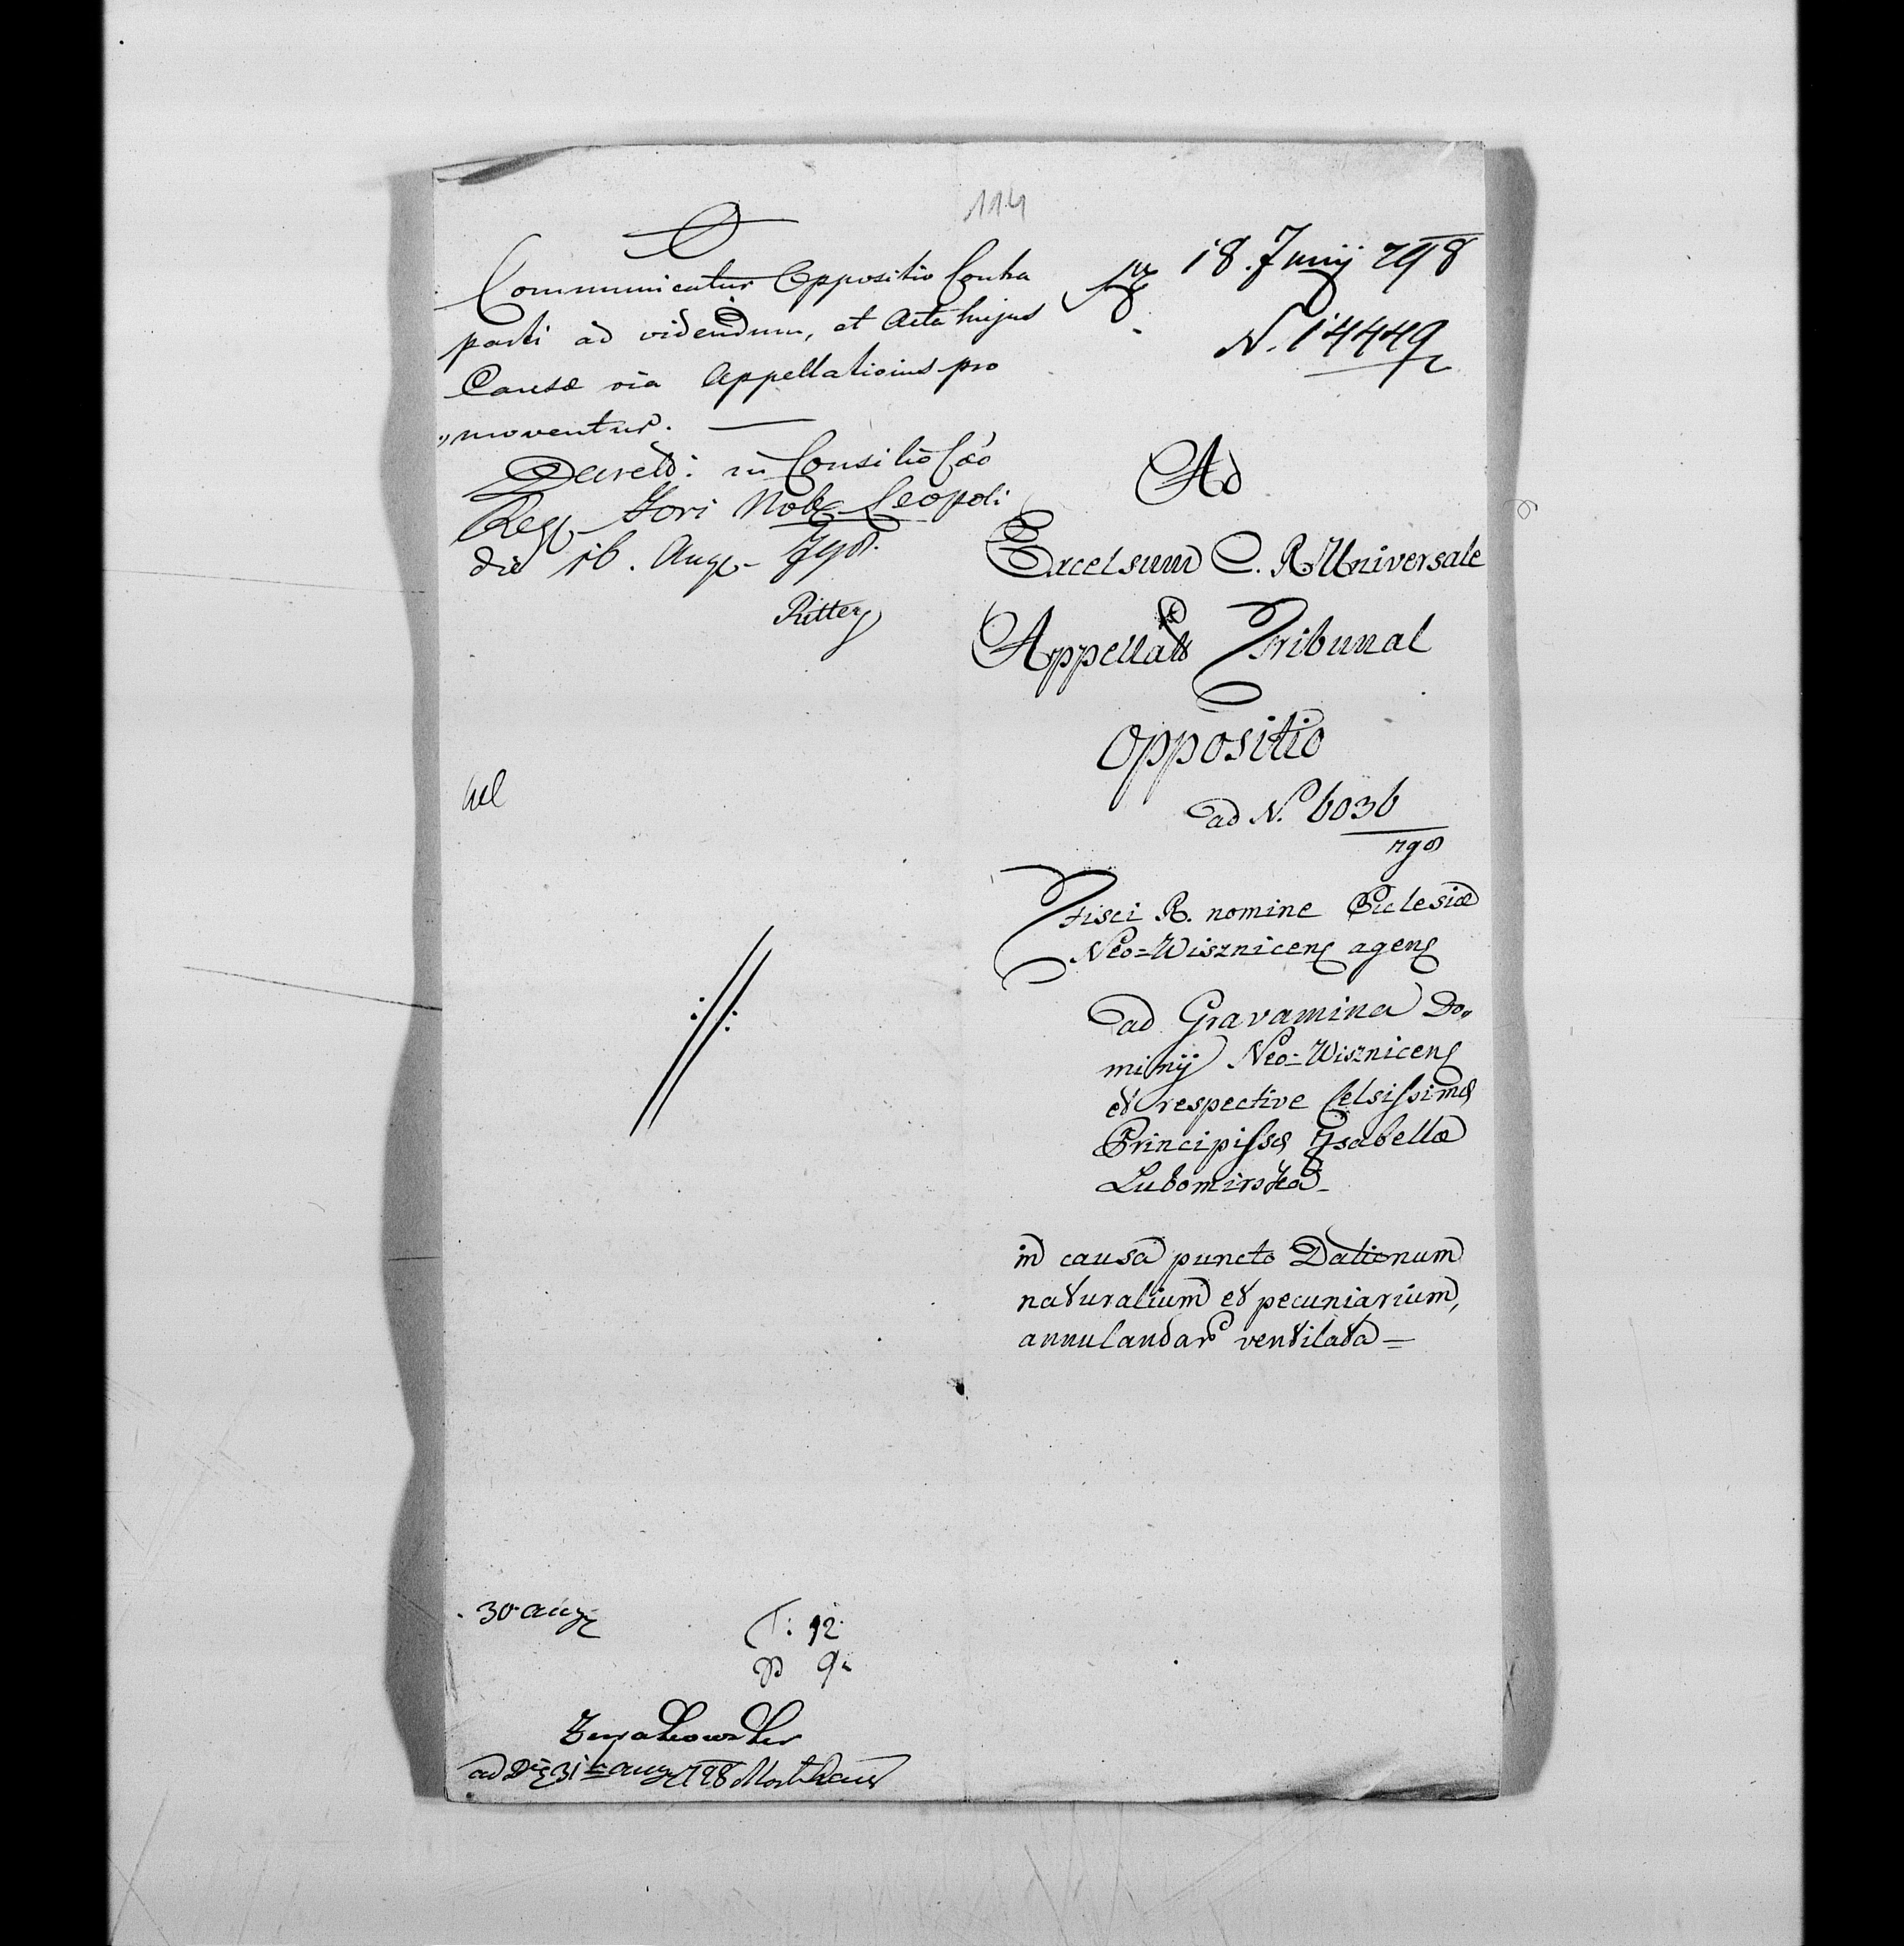 114
Communicatur Oppositio Contra
parti ad videndum, et Acta hujus
Causæ via Appellationis pro
„moventur. —
Decretū: in Consilio Cæo
Reg. Fori Nob. Leopoli
die 16. Aug. 798.
Ritter
18. Junij 798
N. 14449
Ad
Excelsum C. R. Universale
Appellaͭͭis Tribunal
Oppositio
ad N.º 6036
798
Fisci R. nomine Ecclesiæ
Neo=Wisznicens agens
ad Gravamina Do„
minij Neo=Wisznicens
et respective Celsissimæ
Principissæ Ysabellæ
Lubomirska
in causa puncto Dationum
naturalium et pecuniarium,
annulandar ventilata =
30 aug
T: 12
P 9
ad D 31 aug 798